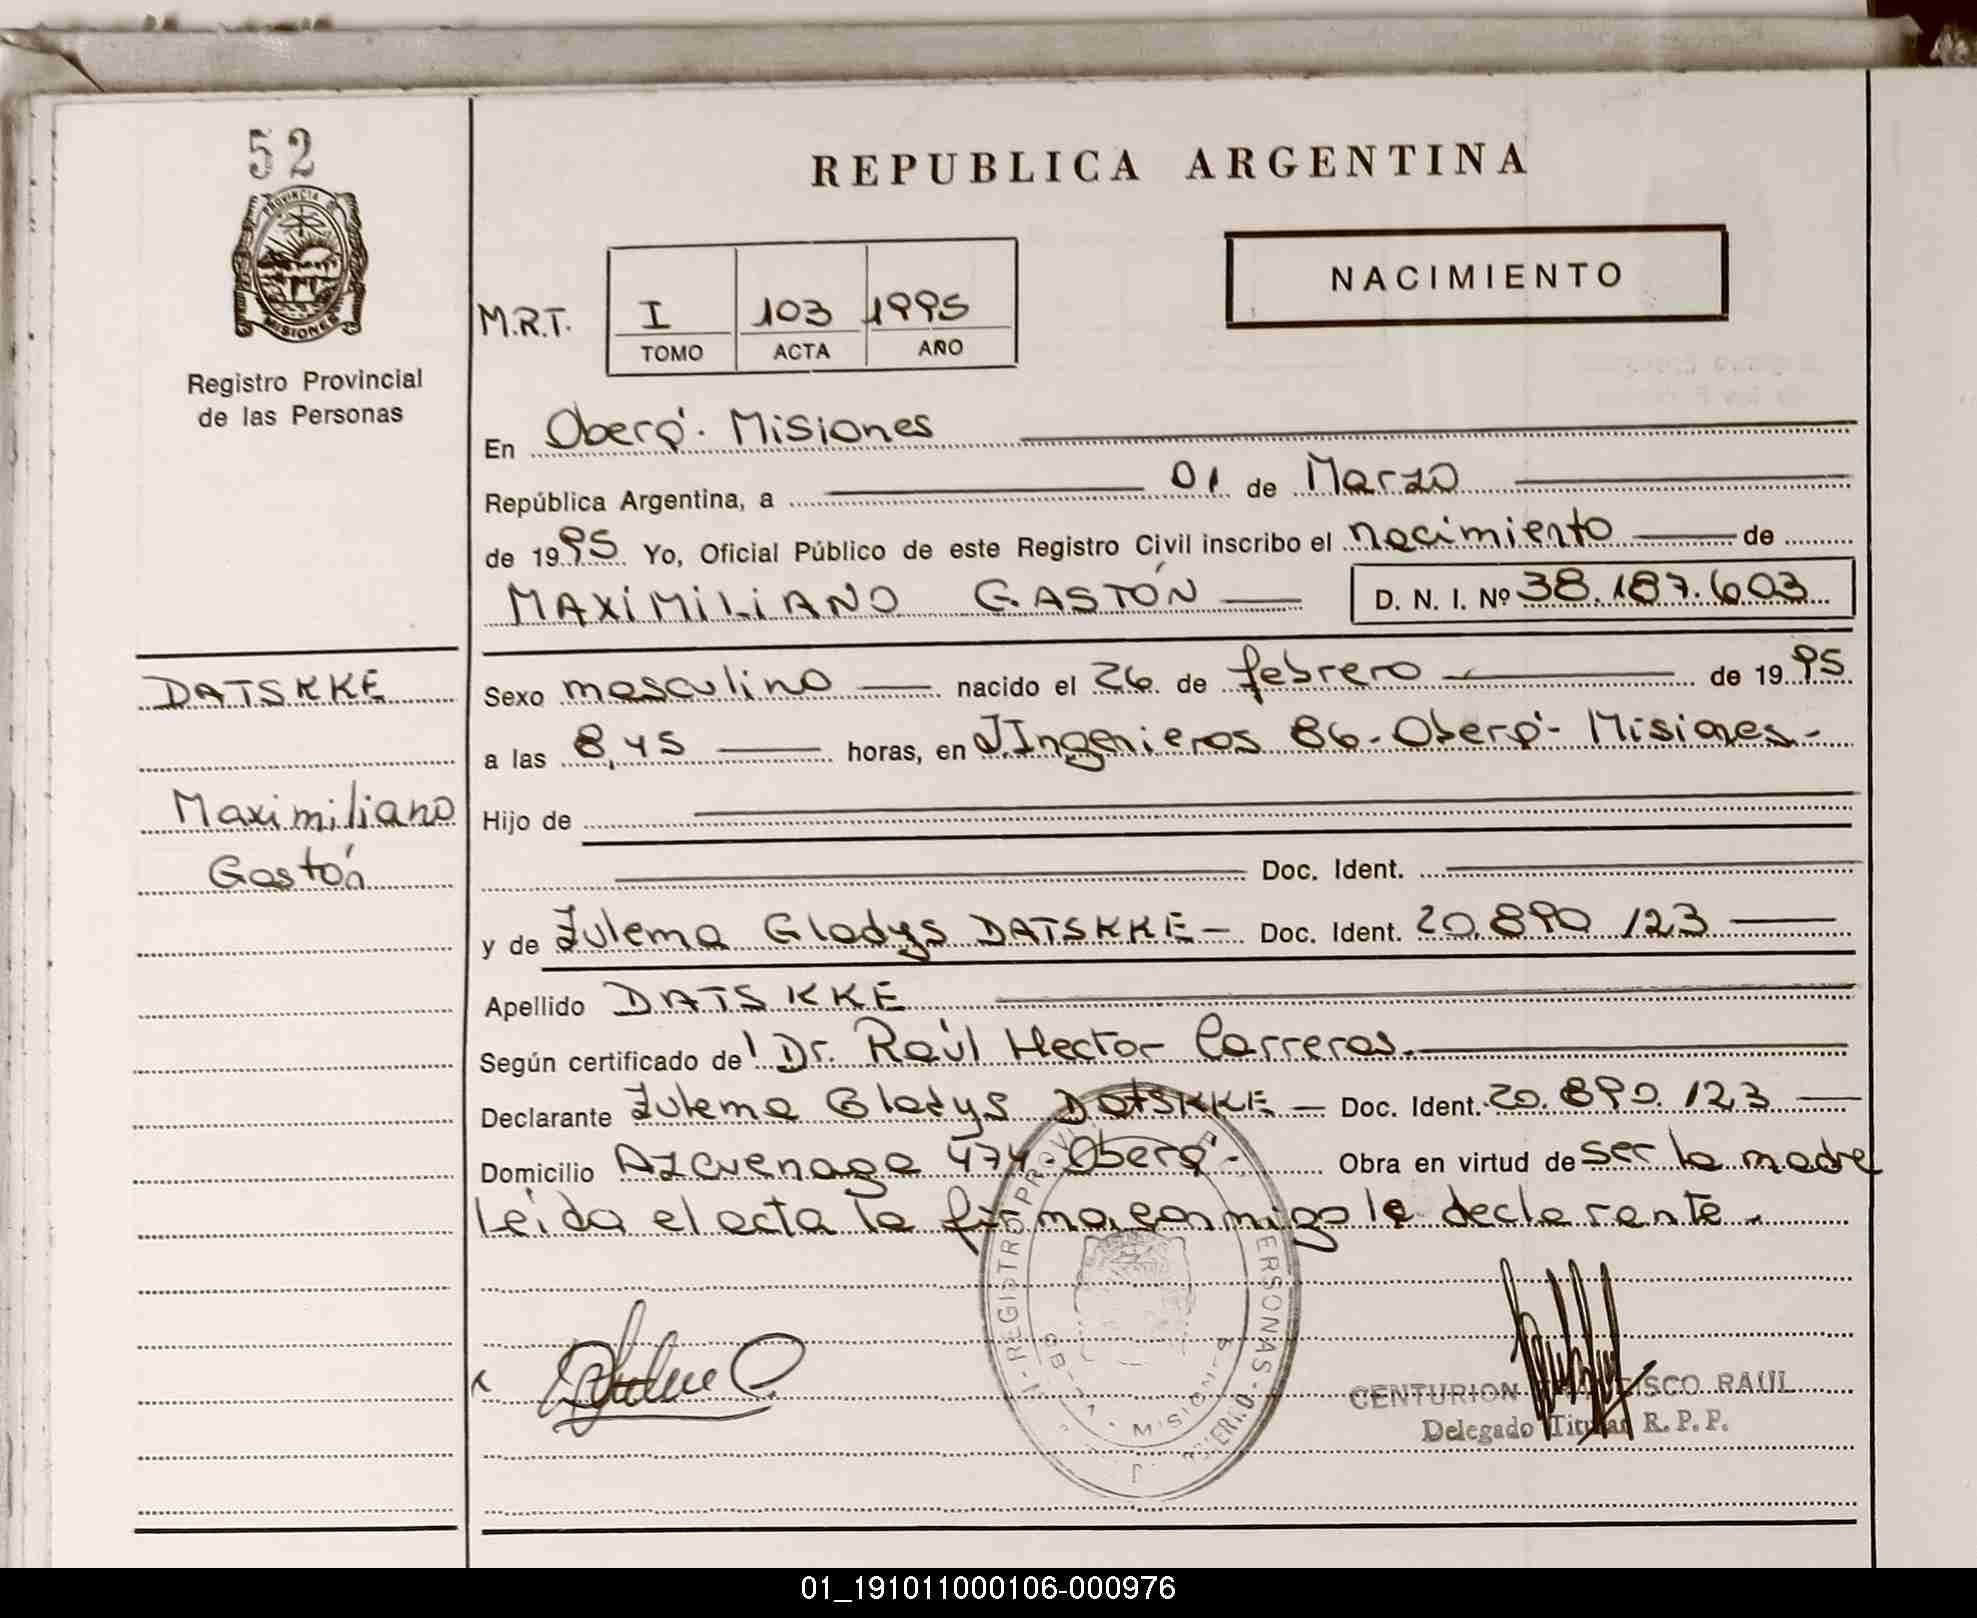 52
PROVINCIA D
MISIONES
Registro Provincial
de las Personas
REPUBLICA ARGENTINA
NACIMIENTO
M.R.T. I 103 1995
TOMO ACTA AÑO
En Oberá. Misiones
República Argentina, a 01 de Marzo
de 1995 Yo, Oficial Público de este Registro Civil inscribo el nacimiento de
MAXIMILIANO GASTÓN D. N. I. Nº 38.187.603
DATSKKE
Sexo masculino nacido el 26 de febrero de 1995
a las 8,45 horas, en J.Ingenieros 86-Oberá- Misiones-
Maximiliano
Gastón
Hijo de
Doc. Ident.
y de Zulema Gladys DATSKKE- Doc. Ident. 20.890.123
Apellido DATSKKE
Según certificado del Dr. Raúl Hector Carreras.
Declarante Zulema Gladys DATSKKE - Doc. Ident. 20.890.123
Domicilio Azcuenaga 474-Oberá- Obra en virtud de ser la madre
Leida el acta la firma conmigo la declarante.
REGISTRO PROVI ERSONAS
MISIONES
x
CENTURION ISCO RAUL
Delegado Titular R. P. P.
01_191011000106-000976